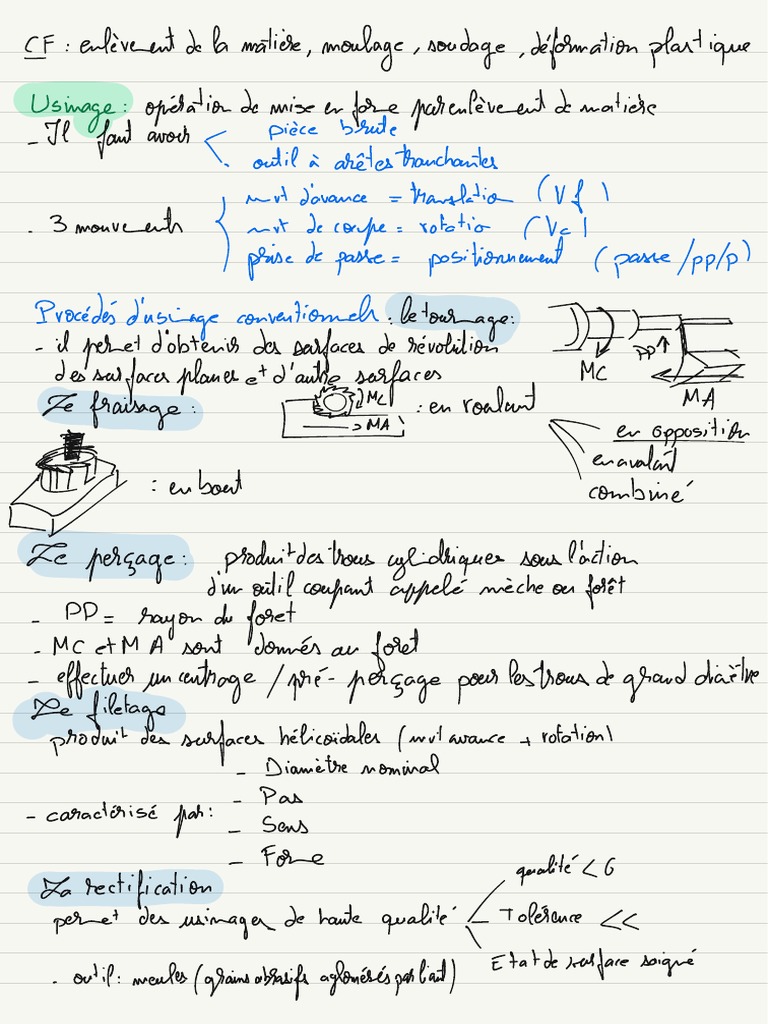 CF : enlèvement de la matière, moulage, soudage, déformation plastique
Usinage : opération de mise en forme par enlèvement de matière
- Il faut avoir
pièce brute
outil à arêtes tranchantes
- 3 mouvements
mvt d'avance = translation (Vf)
mvt de coupe = rotatio (Vc)
prise de passe = positionnement (passe/pp/p)
Procédés d'usinage conventionnels : le tournage :
- il permet d'obtenir des surfaces de révolution
des surfaces planes et d'autre surfaces
MC
PP
MA
Le fraisage :
MC
MA
: en roulant
en opposition
en avalant
combiné
: en bout
Le perçage : produit des trous cylidriques sous l'action
d'un outil coupant appelé mèche ou forêt
- PP = rayon du foret
- MC et MA sont donnés au foret
- effectuer un centrage / pré-perçage pour les trous de grand diamètre
Le filetage
produit des surfaces hélicoïdales (mvt avance + rotation)
- caractérisé par :
- Diamètre nominal
- Pas
- Sens
- Forme
La rectification
permet des usinages de haute qualité
qualité < 6
Tolérence <<
Etat de surface soigné
- outil : meules (grains abrasifs aglomérés par liant)